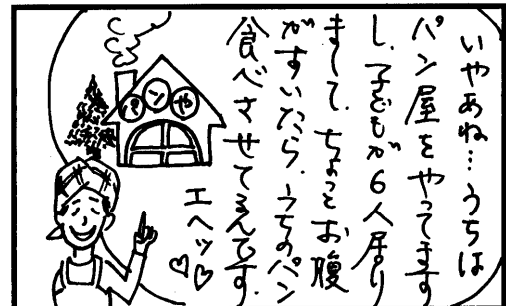 いやあね…うちは
パン屋をやってます
し、子どもが6人居り
まして、ちょっとお腹
がすいたら、うちのパン
食べさせてるんです.
エヘッ♡♡
パンや